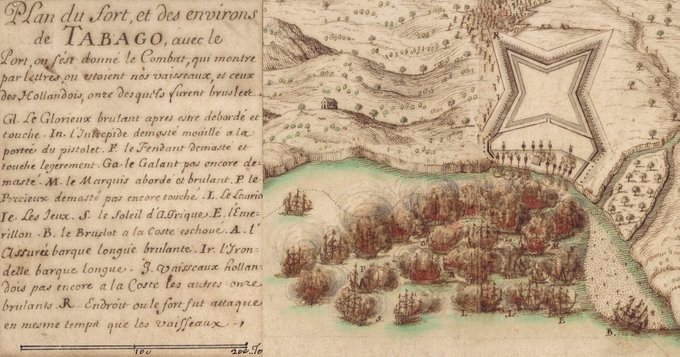 Plan du fort, et des environs
de TABAGO, avec le
Port, ou s'est donné le Combat, qui montre
par lettres, ou estoient nos vaisseaux, et ceux
des Hollandois, onze desquels furent bruslez.
Gl. Le Glorieux brulant apres estre débordé et
touché. In. l'Intrepide demasté mouillé a la
portée du pistolet. F. le Fendant demasté et
touché legerement. Ga. le Galant pas encore de-
masté. M. le Marquis abordé et brulant. P. le
Precieux demasté pas encore touché. L. le Laurier
Ie. Les Jeux. S. le Soleil d'Affrique. E. l'Eme-
rillon. B. le Bruslot a la Coste eschoué. A. l'
Assurée barque longue brulante. Ir. l'Iron-
delle barque longue. 3. vaisseaux hollan-
dois pas encore a la Coste les autres onze
brulants. R. Endroit ou le fort fut attaqué
en mesme tempt que les vaisseaux.
100 200 To
S. L. I. E B.